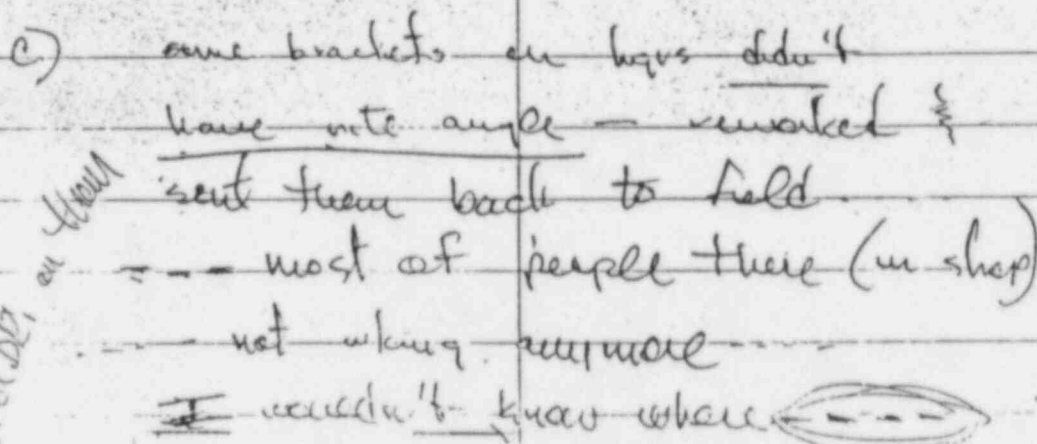 c) some brackets on hgrs didn't
have rite angle — reworked &
sent them back to field
--- most of people there (in shop)
--- not wking anymore ---
I wouldn't know where ----
on them